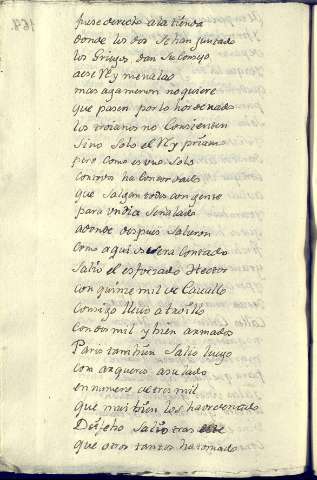 169.
fuese derecto a la tienda
donde los dos se han juntado
los Griegos dan su Consejo
a ese Rey menalao
mas agamenon no quiere
que pasen por lo hordenado
los troianos no Consienten
Sino Solo el Rey priam
pero Como es uno Solo
que Salgan todos con gente
para un dia Señalado
adonde despues Salieron
Como aqui os sera Contado
Salio el esforsado Hector
con quinze mil de Cavallo
Consigo llevo a troillo
Con dos mil y bien armados
Paris tambien Salio luego
con arqueros a su lado
en numero de tres mil
que mui bien los ha ordenado
Deifebo Salio tras este
que otros tantos ha tomado